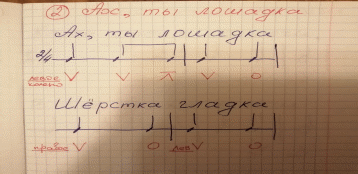 ② Аос, ты лошадка
Ах, ты лошадка
2/4
левое колено V V V V O
Шёрстка гладка
правое V O лев V O